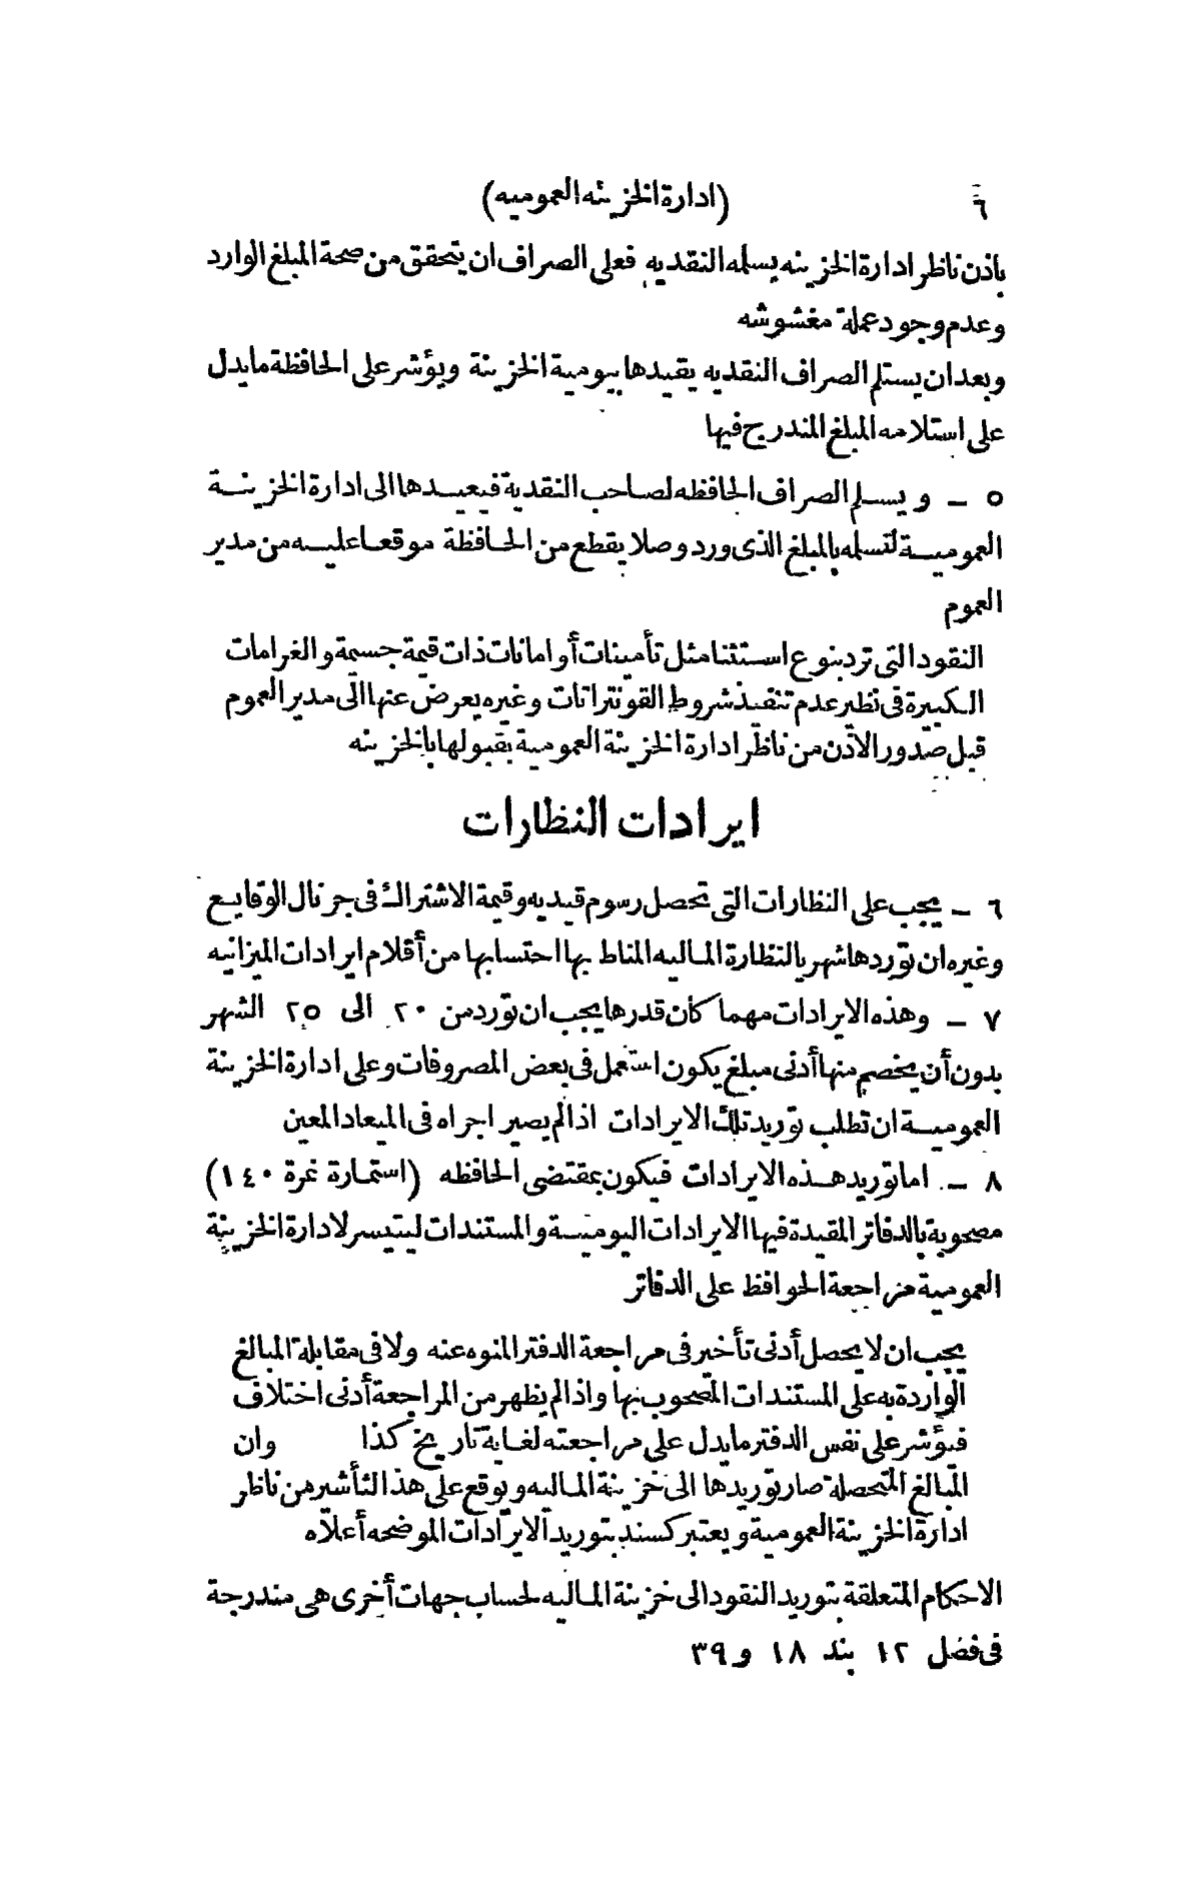 ٦ (ادارة الخزينه العموميه)
باذن ناظر ادارة الخزينه يسلمه النقديه فعلى الصراف ان يتحقق من صحة المبلغ الوارد
وعدم وجود عملة مغشوشه
وبعد ان يستلم الصراف النقديه يقيدها بيومية الخزينة ويؤشر على الحافظة مايدل
على استلامه المبلغ المندرج فيها
٥ – ويسلم الصراف الحافظه لصاحب النقدية فيعيدها الى ادارة الخزينة
العمومية لتسلمه بالمبلغ الذى ورد وصلا يقطع من الحافظة موقعا عليه من مدير
العموم
النقود التى ترد بنوع استثنا مثل تأمينات أو امانات ذات قيمة جسيمة والغرامات
الكبيرة فى نظير عدم تنفيذ شروط القونتراتات وغيره يعرض عنها الى مدير العموم
قبل صدور الاذن من ناظر ادارة الخزينة العمومية بقبولها بالخزينه
ايرادات النظارات
٦ – يجب على النظارات التى تحصل رسوم قيديه وقيمة الاشتراك فى جرنال الوقايع
وغيره ان توردها شهريا لنظارة الماليه المناط بها احتسابها من أقلام ايرادات الميزانيه
٧ – وهذه الايرادات مهما كان قدرها يجب ان تورد من ٢٠ الى ٢٥ الشهر
بدون أن يخصم منها أدنى مبلغ يكون استعمل فى بعض المصروفات وعلى ادارة الخزينة
العمومية ان تطلب توريد تلك الايرادات اذا لم يصير اجراه فى الميعاد المعين
٨ – اما توريد هذه الايرادات فيكون بمقتضى الحافظه (استمارة نمرة ١٤٠)
مصحوبة بالدفاتر المقيدة فيها الايرادات اليومية والمستندات ليتيسر لادارة الخزينة
العمومية مراجعة الحوافظ على الدفاتر
يجب ان لا يحصل أدنى تأخير فى مراجعة الدفتر المنوه عنه ولا فى مقابلة المبالغ
الواردة به على المستندات المصحوب بها واذا لم يظهر من المراجعة أدنى اختلاف
فيؤشر على نفس الدفتر مايدل على مراجعته لغاية تاريخ كذا وان
المبالغ المتحصلة صار توريدها الى خزينة الماليه ويوقع على هذا التأشير من ناظر
ادارة الخزينة العمومية ويعتبر كسند بتوريد الايرادات الموضحه أعلاه
الاحكام المتعلقة بتوريد النقود الى خزينة الماليه لحساب جهات أخرى هى مندرجة
فى فصل ١٢ بند ١٨ و ٣٩